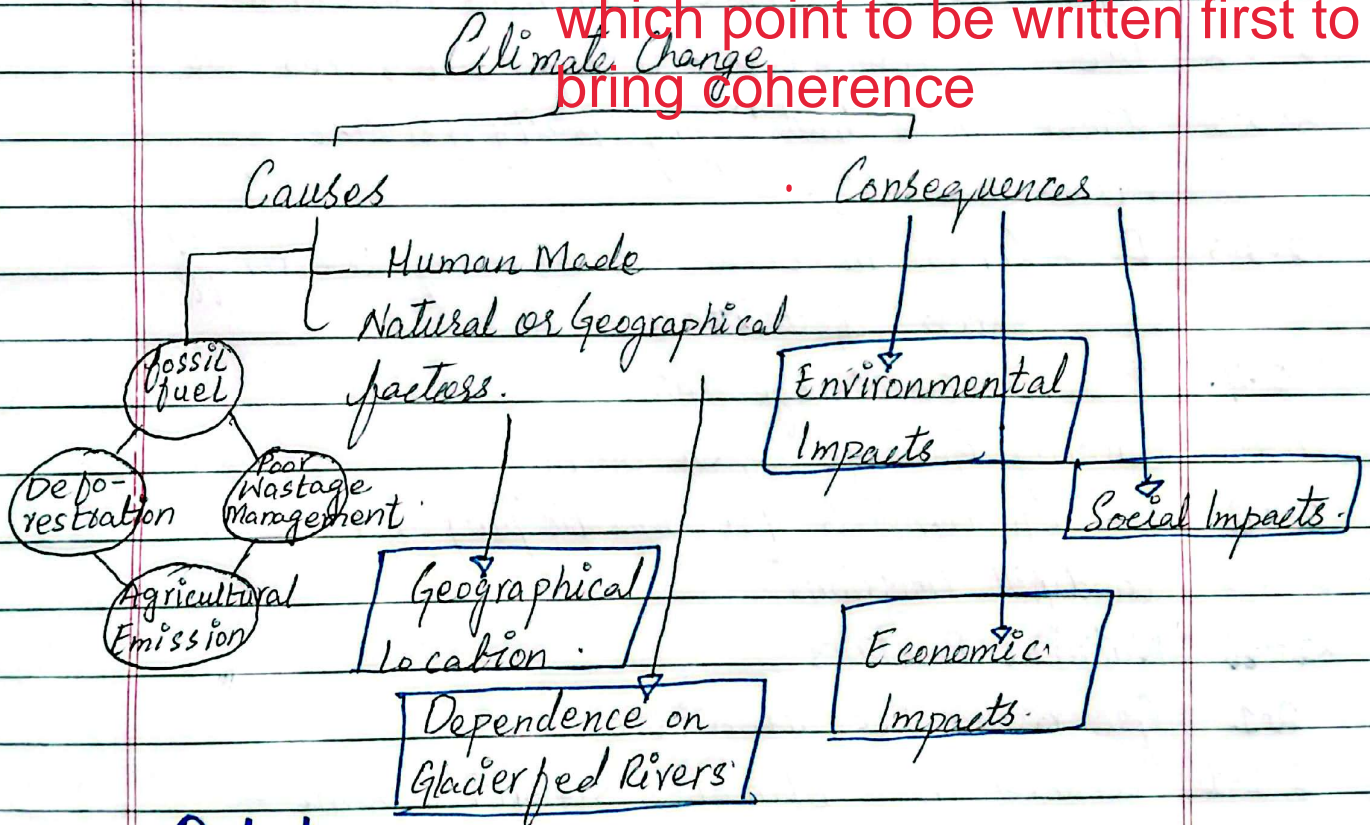 which point to be written first to
Climate Change
bring coherence
Causes
Consequences
Human Made
Natural or Geographical
factors.
fossil
fuel
Defo-
restration
Poor
Wastage
Management
Agricultural
Emission
Geographical
Location.
Dependence on
Glacier fed Rivers
Environmental
Impacts
Social Impacts.
Economic
Impacts.